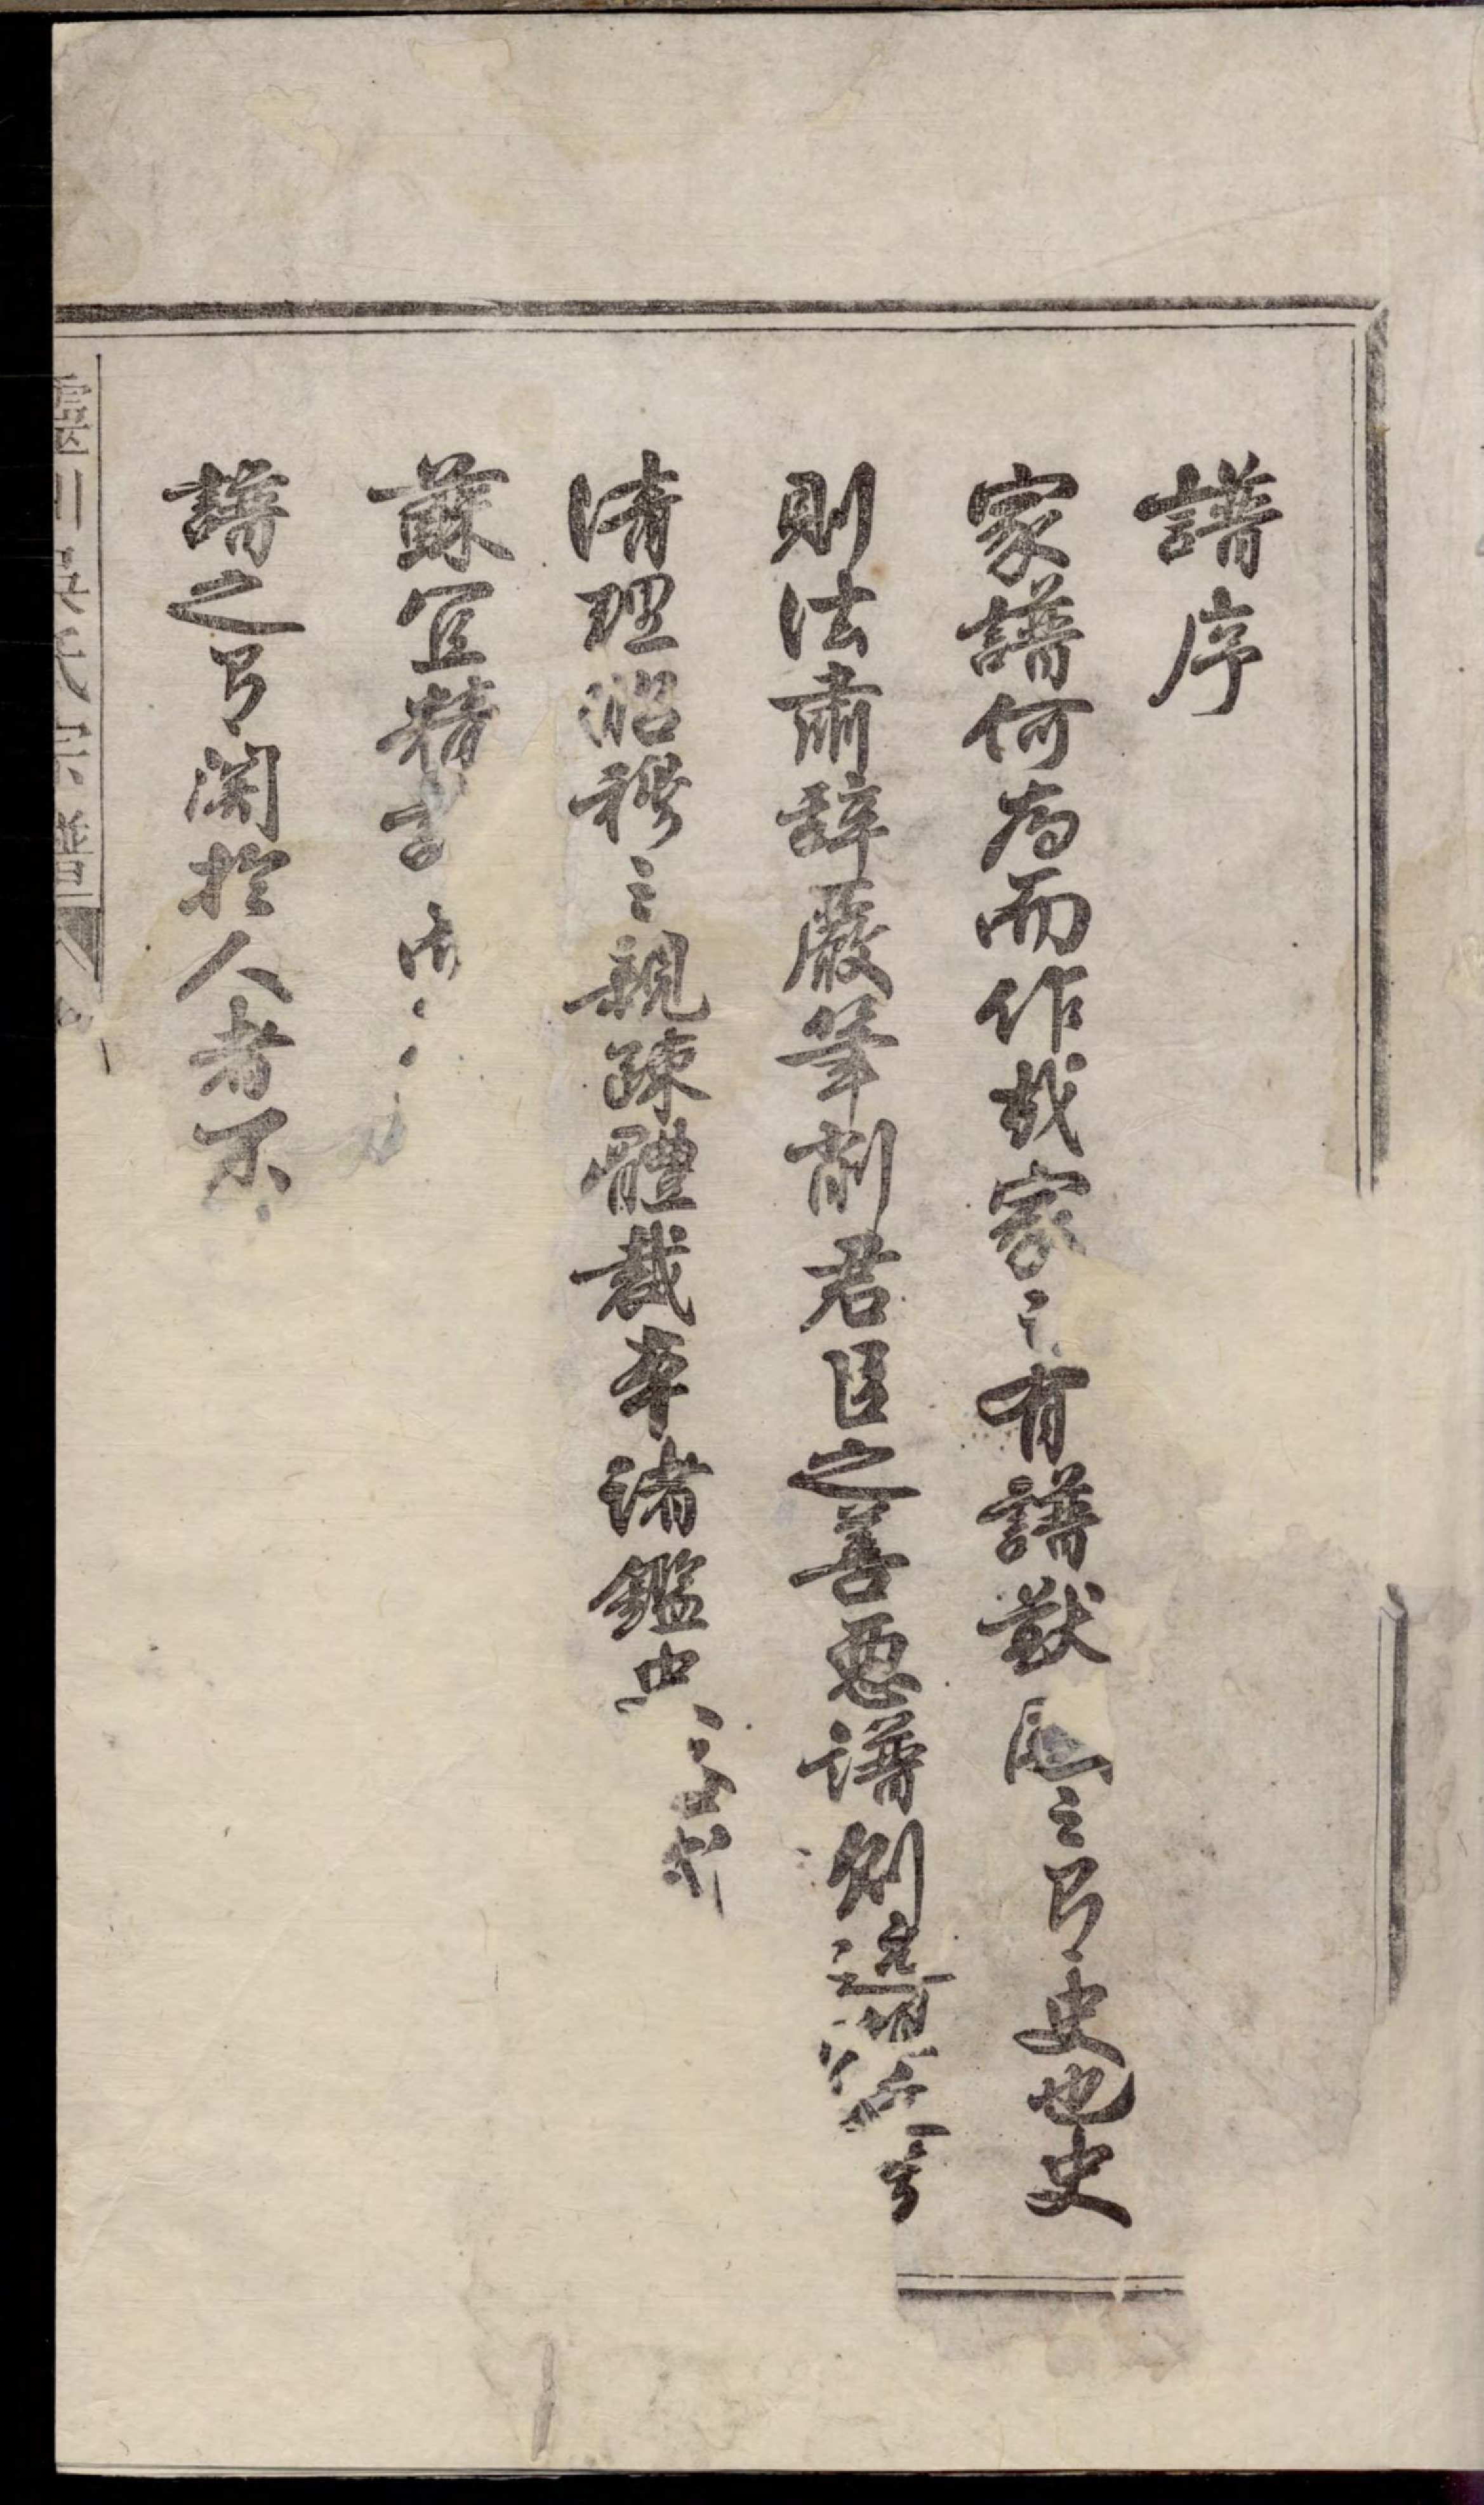 譜序
家譜何為而作哉家之有譜猷國之有史也史
則法肅辞嚴筆削君臣之善惡譜例
清理昭穆之親疎體裁本諸鑑史
蘇宜精
譜之有関於人者不
川吳氏宗譜